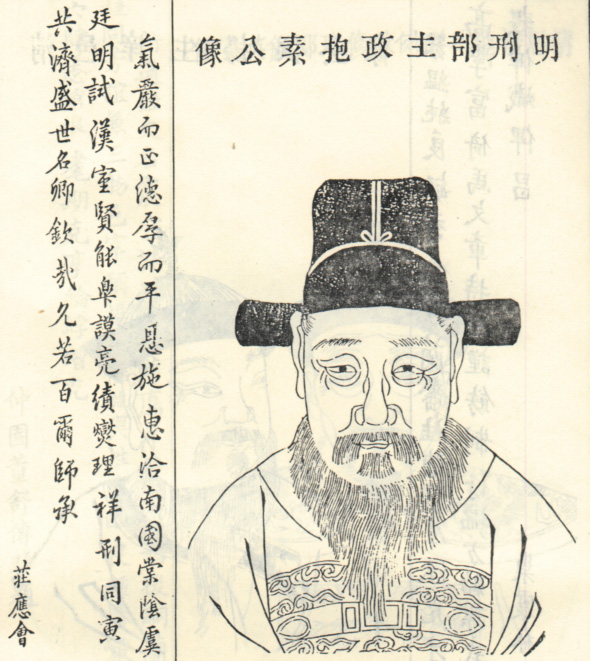 明刑部主政抱素公像
氣嚴而正德孚而平恩施惠洽南國棠陰虞
廷明試漢室賢能皐謨亮績燮理祥刑同寅
共濟盛世名卿欽哉允若百爾師承
莊應會